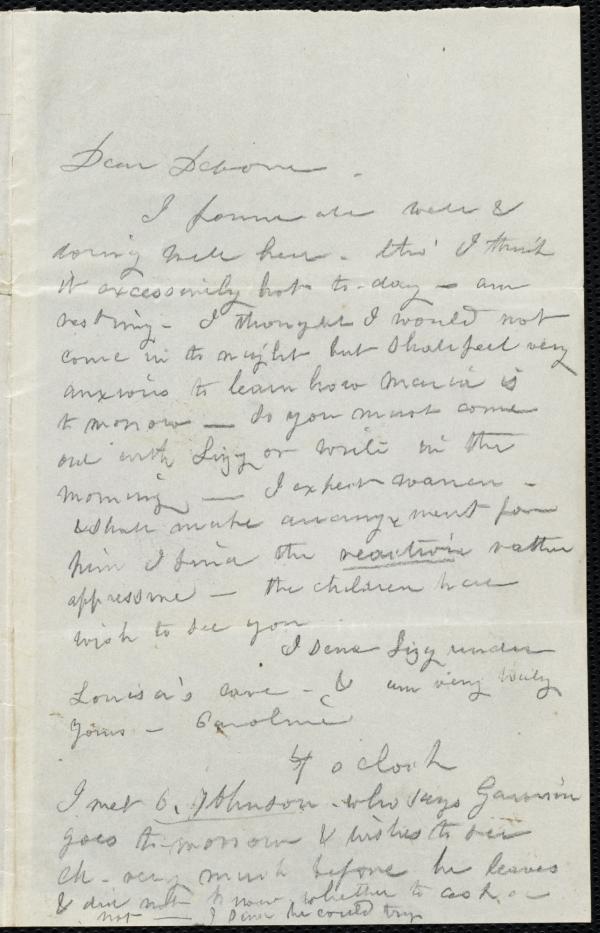 Dear Debora.
I found all well &
doing well here. tho' I think
it excessively hot to-day - am
resting. I thought I would not
come in to night but shall feel very
anxious to learn how Maria is
to morrow - so you must come
out with Lizzy or write in the
morning - I expect Warren -
& shall make arrangement for
him I find the reaction rather
oppressive - the children have
wish to see you
I send Lizzy under
Louisa's care - & am very truly
yours - Caroline
4 o clock
I met O. Johnson who says Garrison
goes to-morrow & wishes to see
Ch. very much before he leaves
& did not know whether to ask or
not - I said he could try